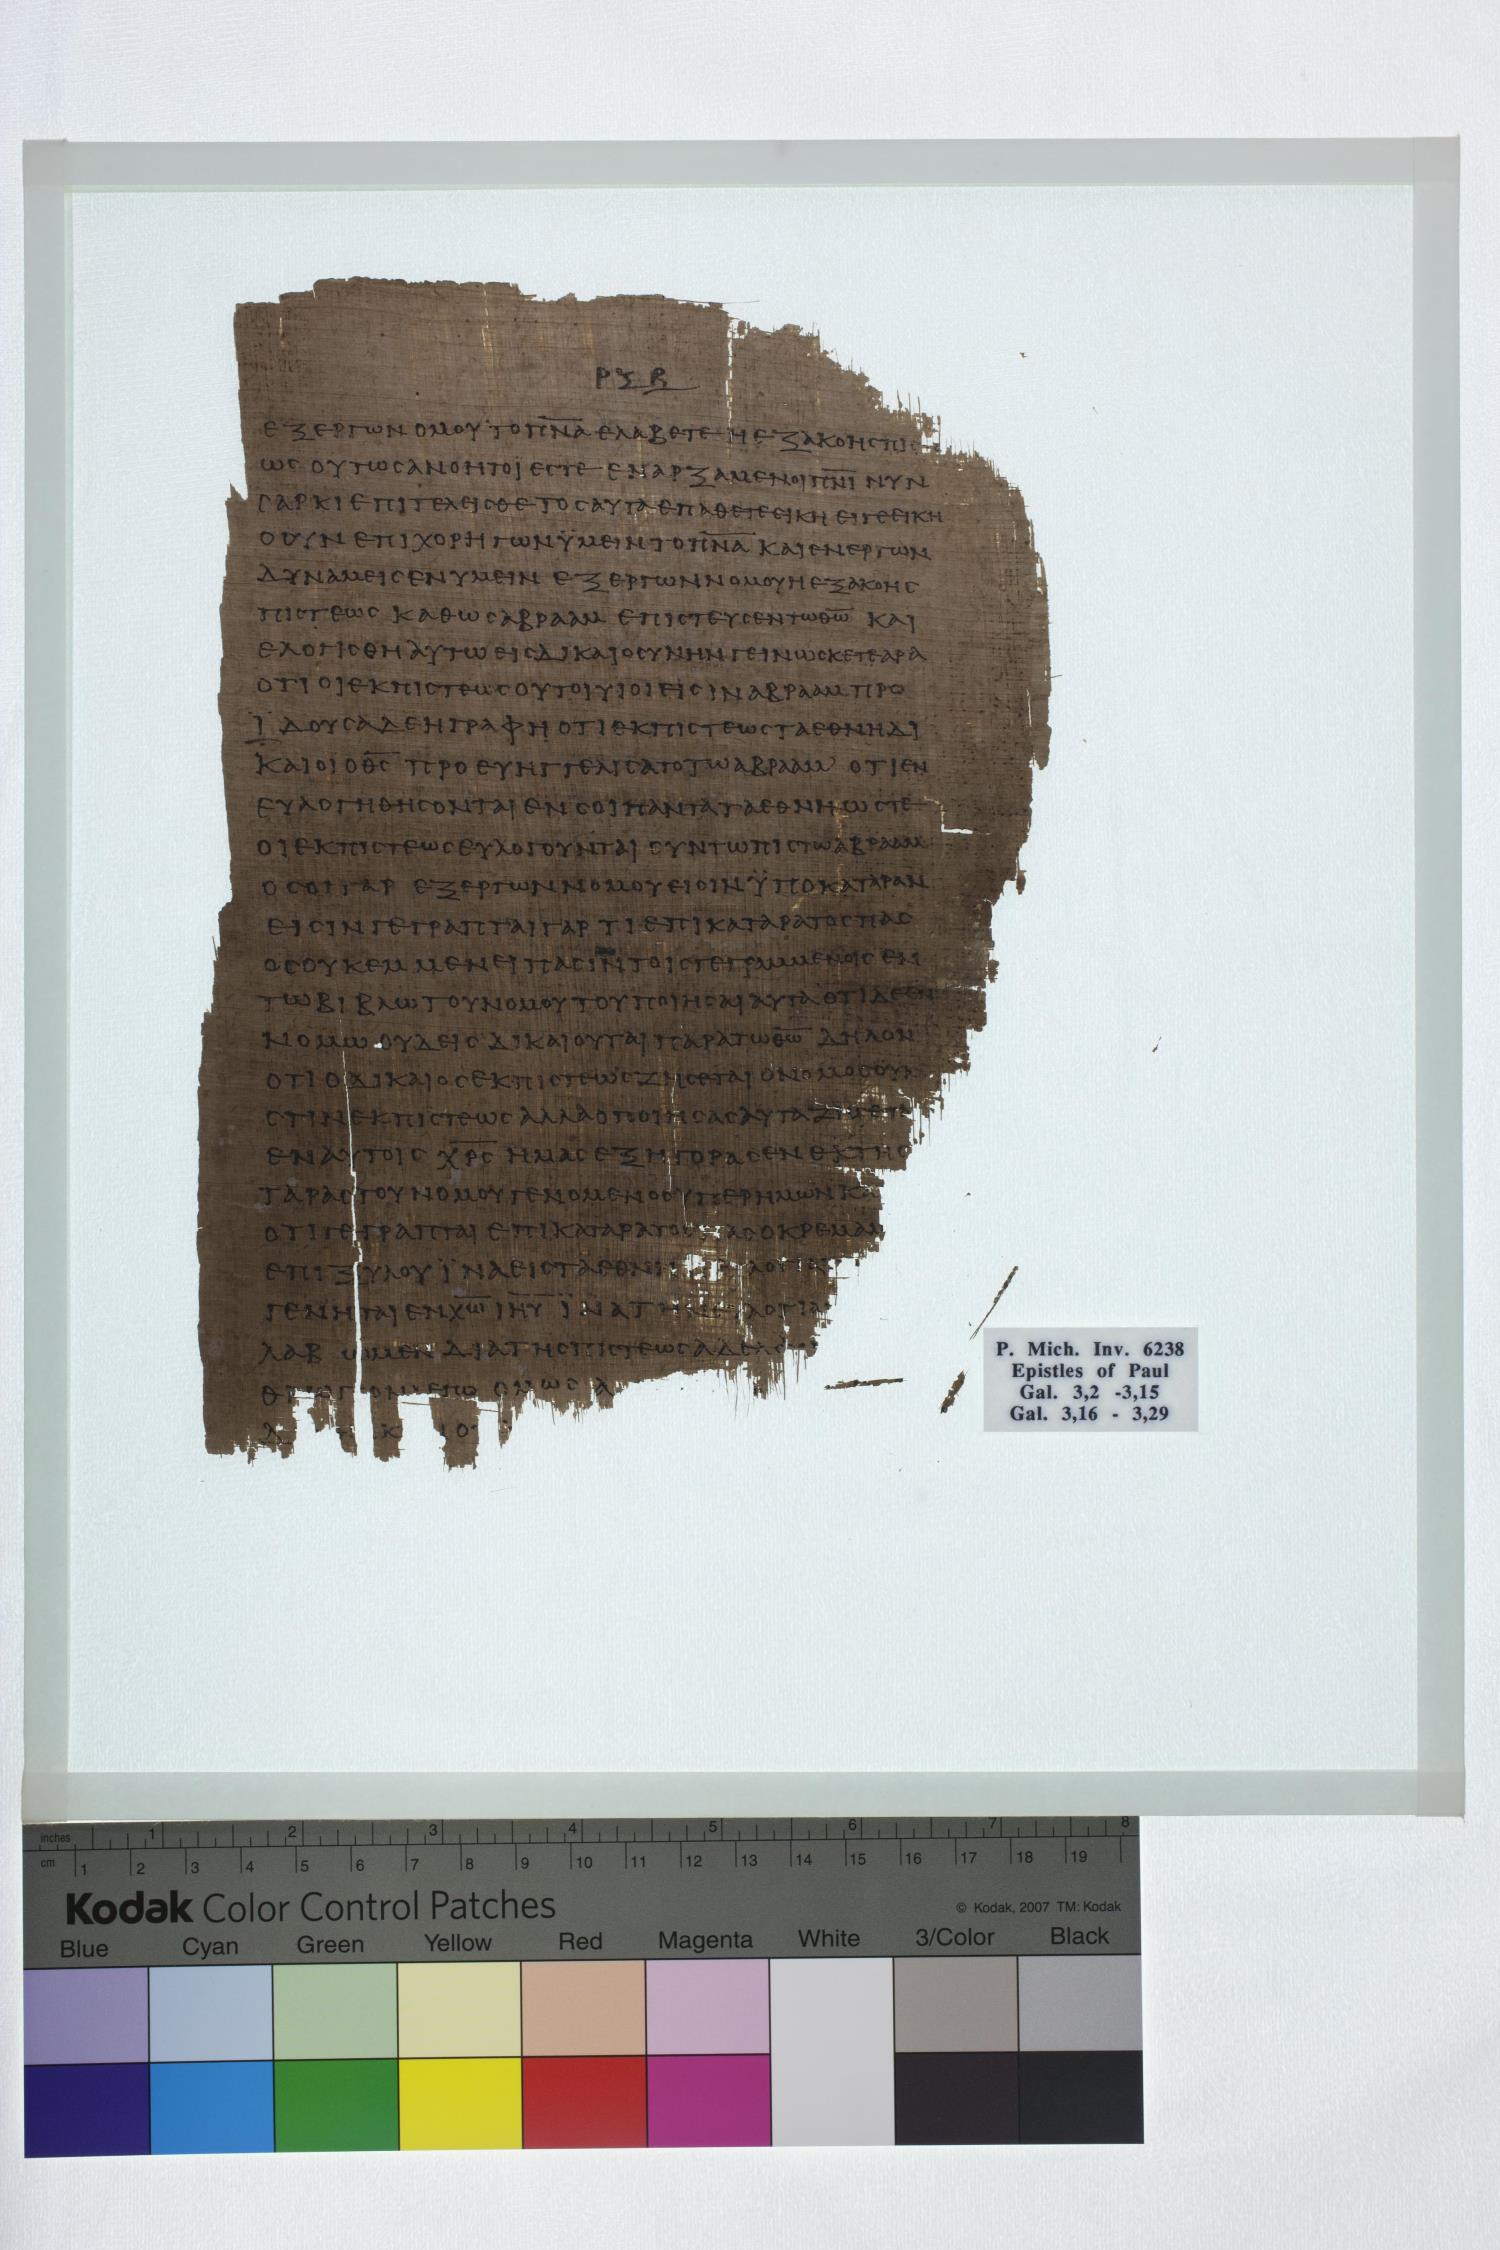 ΡΞΒ
ΕΞΕΡΓωΝ ΟΜΟΥ ΤΟΠΝΑ ΕΛΑΒΕΤΕ Η ΕΞΑΚΟΗϹ
ωϹ ΟΥΤωϹΑΝΟΗΤΟΙ ΕϹΤΕ ΕΝΑΡΞΑΜΕΝΟΙΠΝΙ ΝΥΝ
ϹΑΡΚΙ ΕΠΙΤΕΛΕΙϹΘΕ ΤΟϹΑΥΤΑΕΠΑΘΕΤΕΕΙΚΗ ΕΙΓΕΕΙΚΗ
ΟΟΥΝ ΕΠΙΧΟΡΗΓωΝΫΜΕΙΝΤΟΠΝΑ ΚΑΙΕΝΕΡΓωΝ
ΔΥΝΑΜΕΙϹΕΝΥΜΕΙΝ ΕΞΕΡΓωΝΝΟΜΟΥΗΕΞΑΚΟΗϹ
ΠΙϹΤΕωϹ ΚΑΘωϹΑΒΡΑΑΜ ΕΠΙϹΤΕΥϹΕΝΤωΘω ΚΑΙ
ΕΛΟΓΙϹΘΗ ΑΥΤω ΕΙϹΔΙΚΑΙΟϹΥΝΗΝΓΕΙΝωϹΚΕΤΕΑΡΑ
ΟΤΙ ΟΙΕΚΠΙϹΤΕωϹΟΥΤΟΙΥΙΟΙΕΙϹΙΝΑΒΡΑΑΜΠΡΟ
ΪΔΟΥϹΑΔΕΗΓΡΑΦΗ ΟΤΙΕΚΠΙϹΤΕωϹΤΑΕΘΝΗΔΙ
ΚΑΙΟΙΟΘϹ ΠΡΟΕΥΗΓΓΕΛΙϹΑΤΟΤωΑΒΡΑΑΜ ΟΤΙΕΝ
ΕΥΛΟΓΗΘΗϹΟΝΤΑΙ ΕΝϹΟΙΠΑΝΤΑΤΑΕΘΝΗωϹΤΕ
ΟΙΕΚΠΙϹΤΕωϹΕΥΛΟΓΟΥΝΤΑΙ ϹΥΝΤωΠΙϹΤωΑΒΡΑΑΜ
ΟϹΟΙΓΑΡ ΕΞΕΡΓωΝΝΟΜΟΥΕΙϹΙΝΫΠΟΚΑΤΑΡΑΝ
ΕΙϹΙΝΓΕΓΡΑΠΤΑΙΓΑΡ ΤΙΕΠΙΚΑΤΑΡΑΤΟϹΠΑϹ
ΟϹΟΥΚΕΜΜΕΝΕΙΠΑϹΙΝΤΟΙϹΓΕΓΡΑΜΜΕΝΟΙϹΕΝ
ΤωΒΙΒΛωΤΟΥΝΟΜΟΥΤΟΥΠΟΙΗϹΑΙΑΥΤΑΟΤΙΔΕΕΝ
ΝΟΜωΟΥΔΕΙϹΔΙΚΑΙΟΥΤΑΙΠΑΡΑΤωΘωΔΗΛΟΝ
ΟΤΙΟΔΙΚΑΙΟϹΕΚΠΙϹΤΕωϹΖΗϹΕΤΑΙΟΝΟΜΟϹΟΥΚ
ϹΤΙΝΕΚΠΙϹΤΕωϹΑΛΛΑΟΠΟΙΗϹΑϹΑΥΤΑΖΗϹΕΤΑ
ΕΝΑΥΤΟΙϹ ΧΡϹ ΗΜΑϹΕΞΗΓΟΡΑϹΕΝΕΚΤΗϹ
ΤΑΡΑϹΤΟΥΝΟΜΟΥΓΕΝΟΜΕΝΟϹΥΠΕΡΗΜωΝΚΑ
ΟΤΙΓΕΓΡΑΠΤΑΙΕΠΙΚΑΤΑΡΑΤΟϹ ΑϹΟΚΡΕΜΑΜ
ΕΠΙΞΥΛΟΥΪΝΑΕΙϹΤΑΕΘΝΗ ΛΟΓΙΑ
ΓΕΝΗΤΑΙΕΝΧωΙΗΥΪΝΑΤΗΝ ΛΟΓΙΑ
ΛΑΒ ωΜΕΝ ΔΙΑΤΗϹΠΙϹΤΕωϹΑΔΕΛΦ
ΘΡ ΟΝ ΕΓω ΟΜωϹ Α
Λ Κ Ο
P. Mich. Inv. 6238
Epistles of Paul
Gal. 3,2 -3,15
Gal. 3,16 - 3,29
inches 1 2 3 4 5 6 7 8
cm 1 2 3 4 5 6 7 8 9 10 11 12 13 14 15 16 17 18 19
Kodak Color Control Patches
© Kodak, 2007 TM: Kodak
Blue Cyan Green Yellow Red Magenta White 3/Color Black